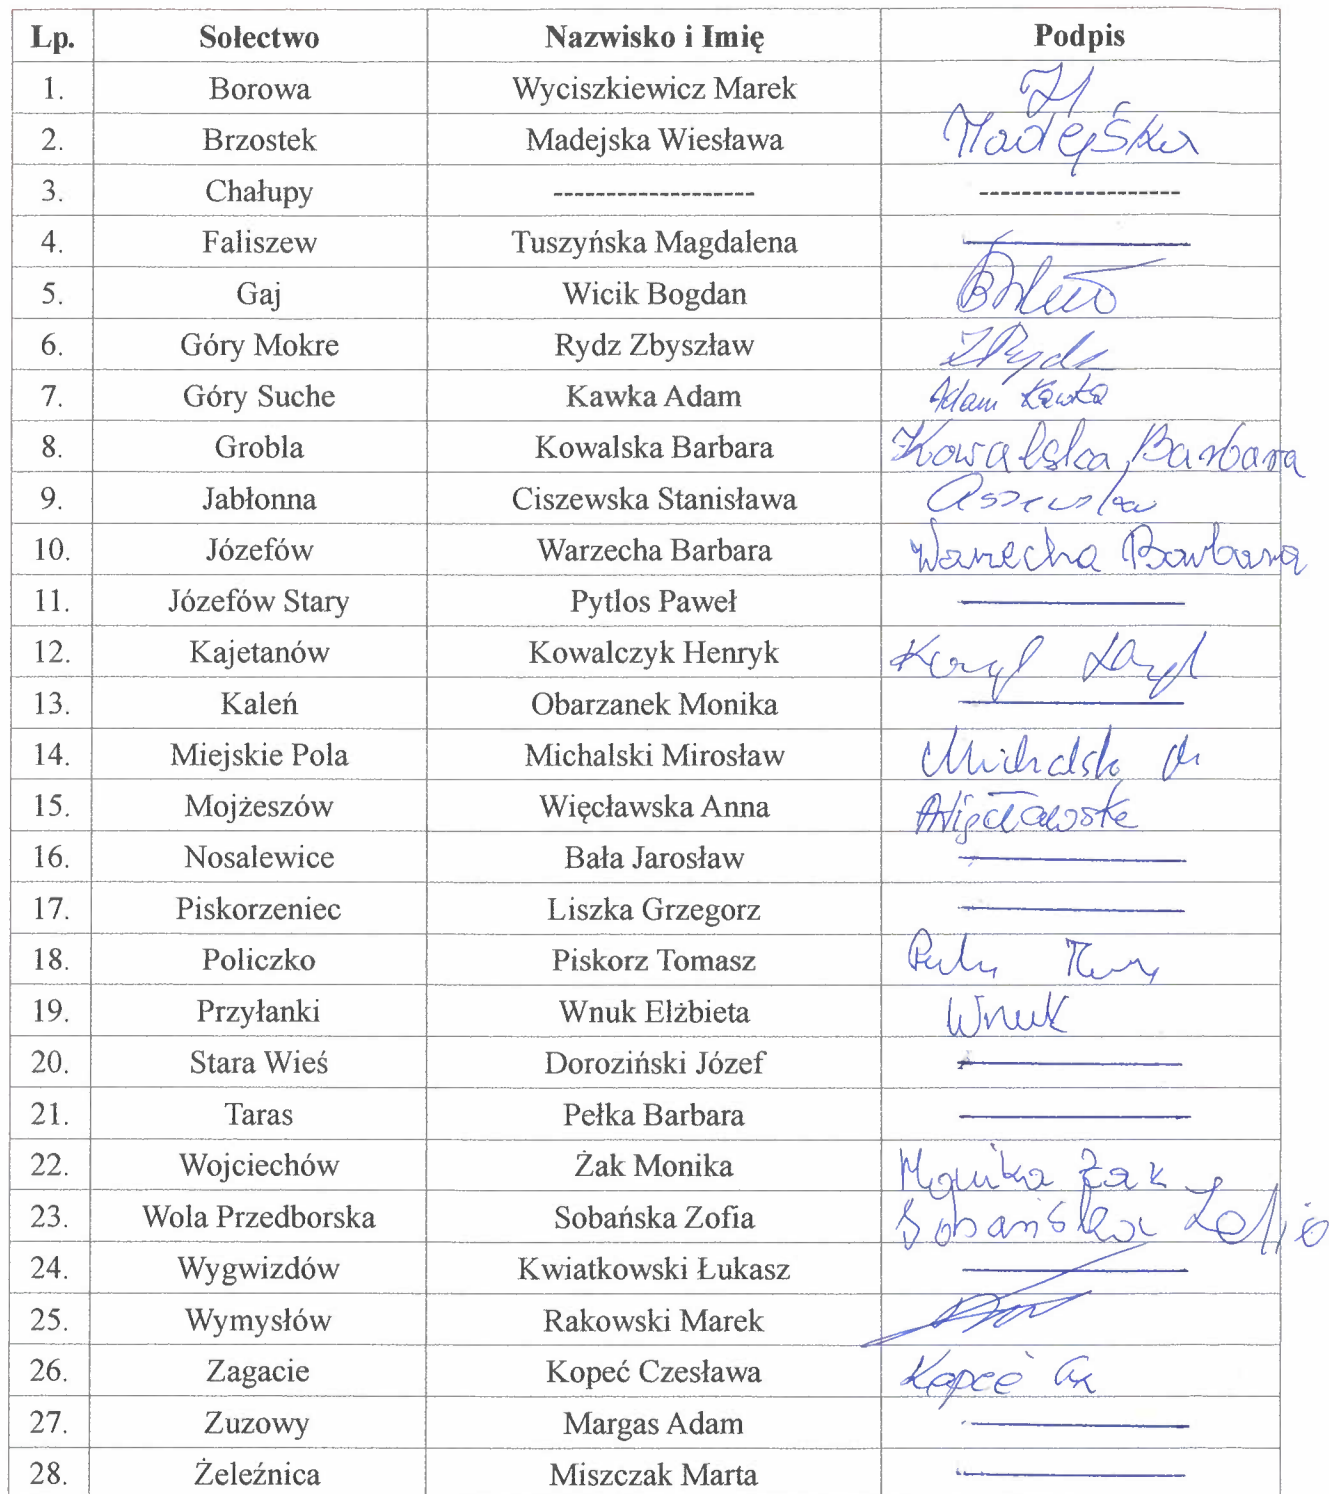 Lp. Sołectwo Nazwisko i Imię Podpis
1. Borowa Wyciszkiewicz Marek
2. Brzostek Madejska Wiesława Madejska
3. Chałupy ------------------- -------------------
4. Faliszew Tuszyńska Magdalena
5. Gaj Wicik Bogdan
6. Góry Mokre Rydz Zbyszław ZRydz
7. Góry Suche Kawka Adam Adam Kawka
8. Grobla Kowalska Barbara Kowalska Barbara
9. Jabłonna Ciszewska Stanisława Ciszewska
10. Józefów Warzecha Barbara Warzecha Barbara
11. Józefów Stary Pytlos Paweł
12. Kajetanów Kowalczyk Henryk
13. Kaleń Obarzanek Monika
14. Miejskie Pola Michalski Mirosław Michalski M
15. Mojżeszów Więcławska Anna AWięcławska
16. Nosalewice Bała Jarosław
17. Piskorzeniec Liszka Grzegorz
18. Policzko Piskorz Tomasz
19. Przyłanki Wnuk Elżbieta Wnuk
20. Stara Wieś Doroziński Józef
21. Taras Pełka Barbara
22. Wojciechów Żak Monika Monika Żak
23. Wola Przedborska Sobańska Zofia Sobańska Zofia
24. Wygwizdów Kwiatkowski Łukasz
25. Wymysłów Rakowski Marek
26. Zagacie Kopeć Czesława Kopeć Cz
27. Zuzowy Margas Adam
28. Żeleźnica Miszczak Marta